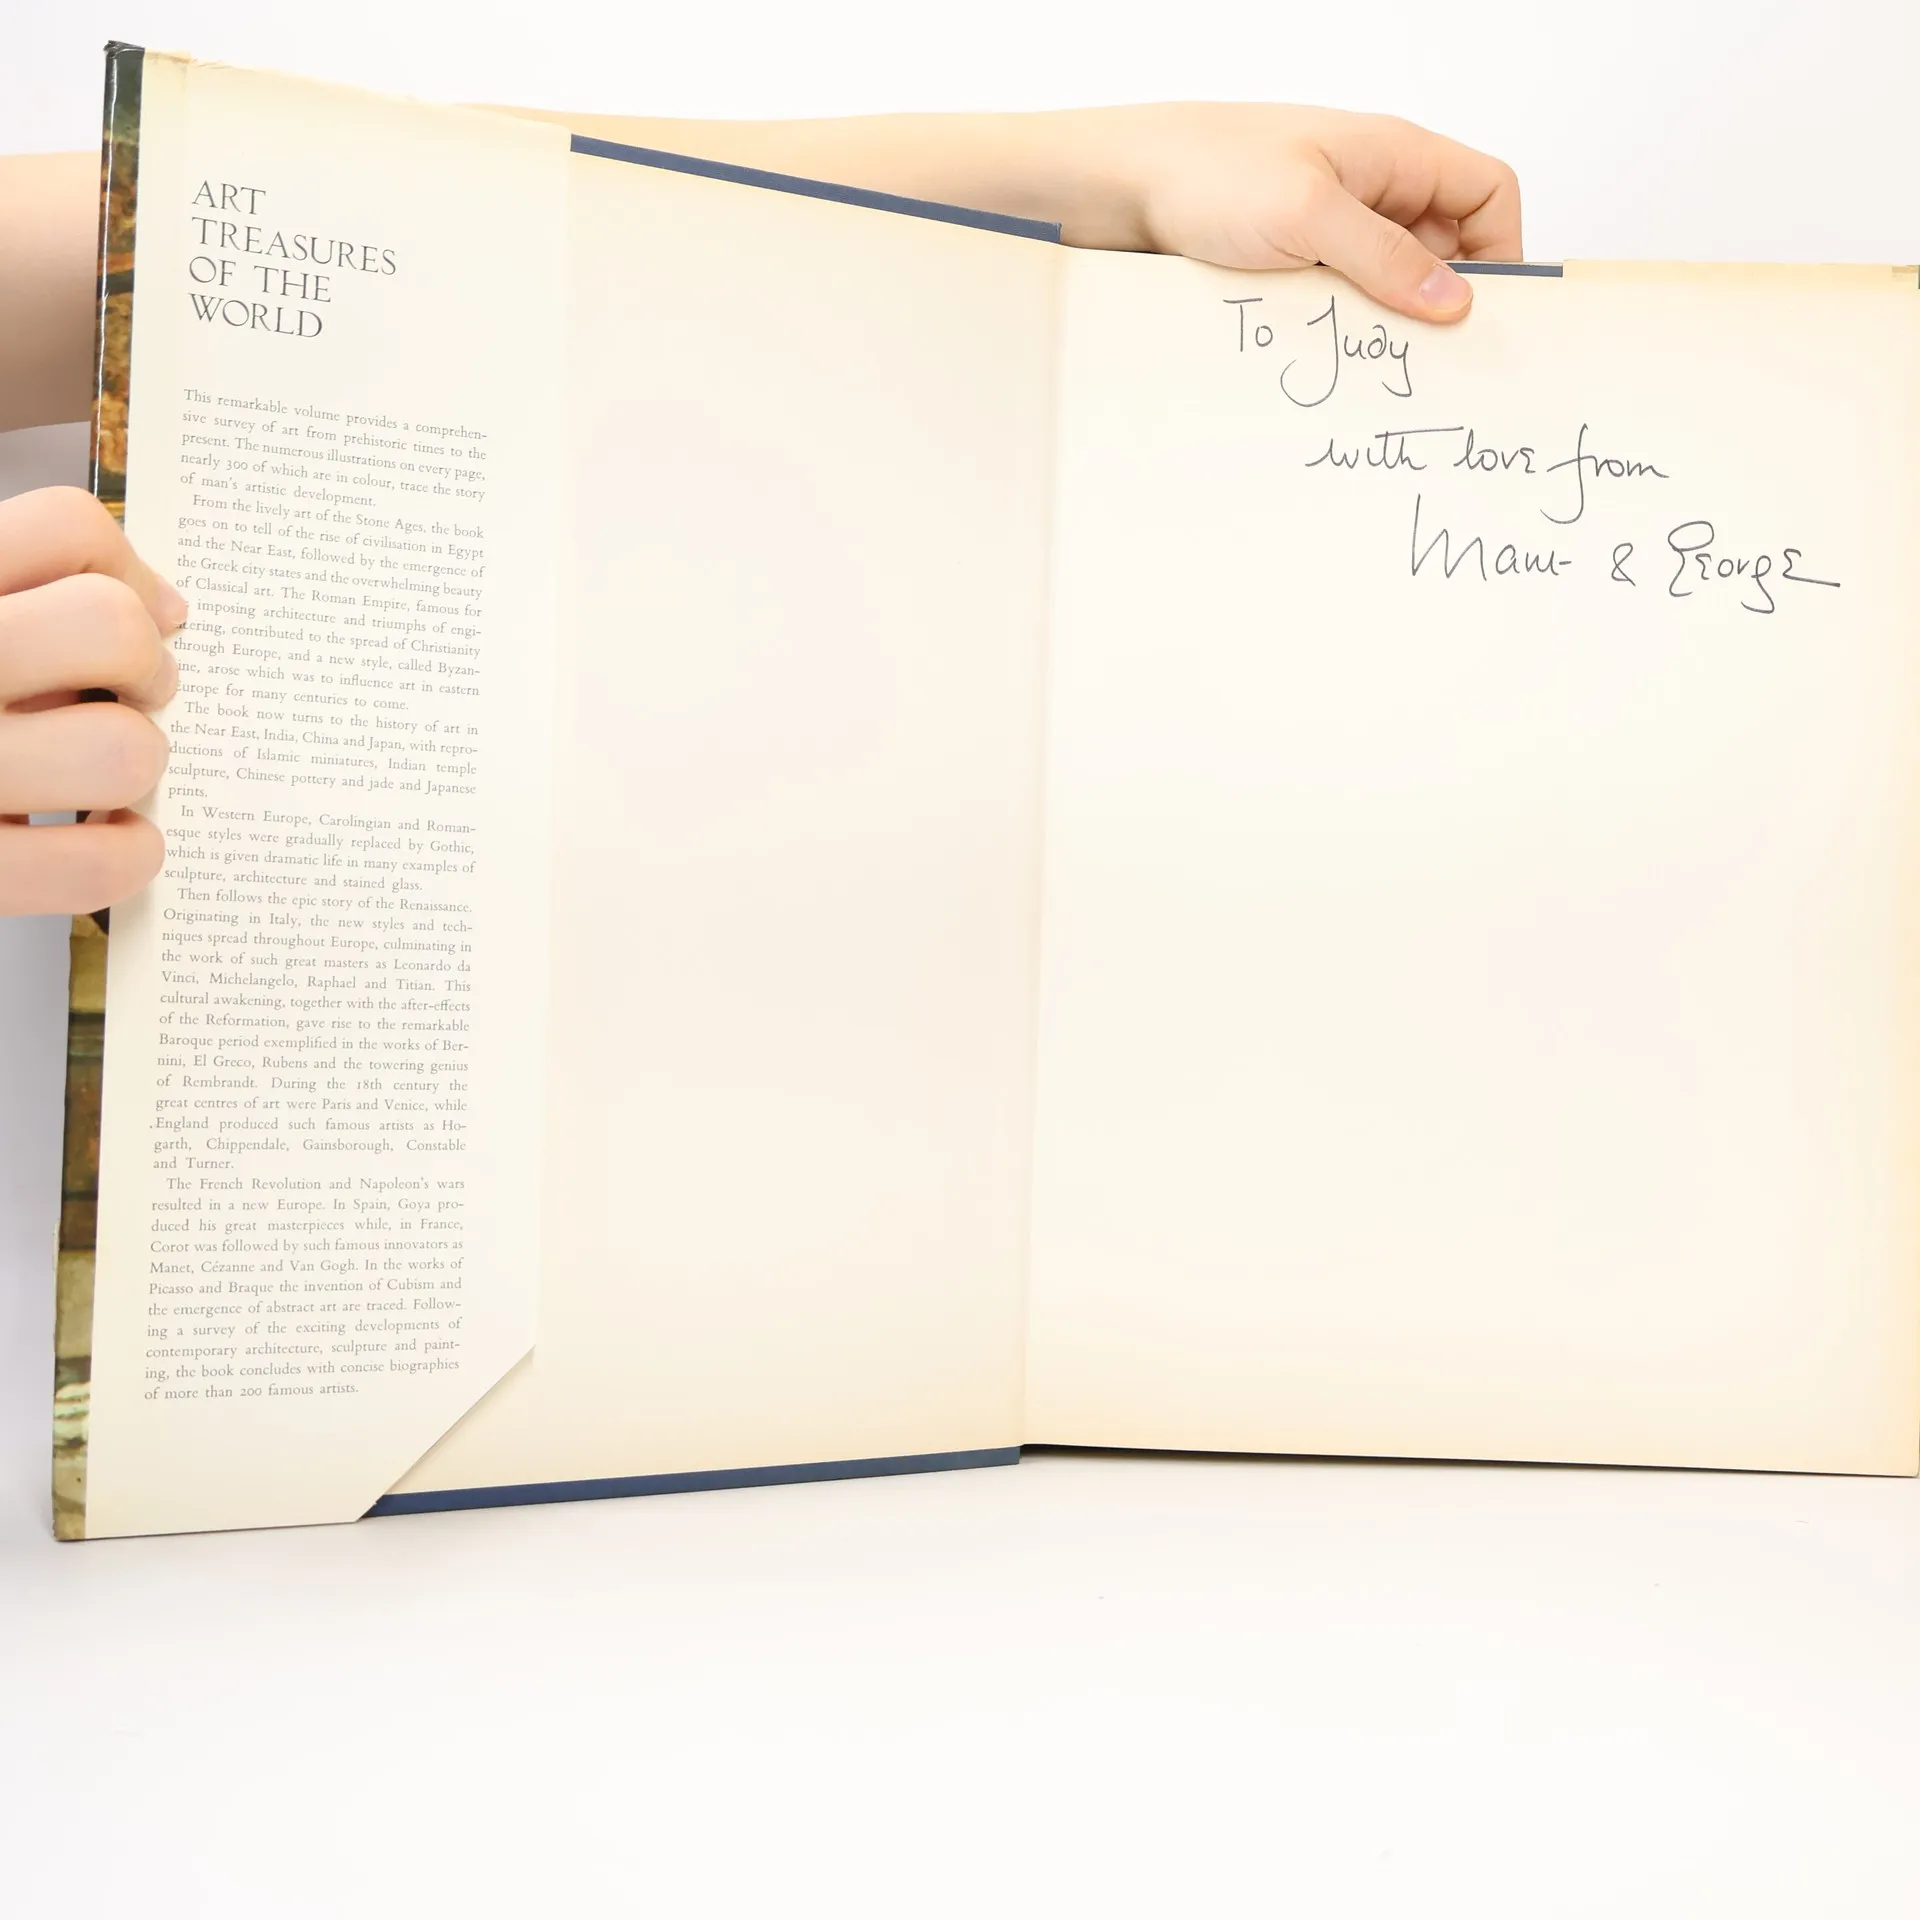 ART
TREASURES
OF THE
WORLD
This remarkable volume provides a comprehen-
sive survey of art from prehistoric times to the
present. The numerous illustrations on every page,
nearly 300 of which are in colour, trace the story
of man's artistic development.
From the lively art of the Stone Ages, the book
goes on to tell of the rise of civilisation in Egypt
and the Near East, followed by the emergence of
the Greek city states and the overwhelming beauty
of Classical art. The Roman Empire, famous for
imposing architecture and triumphs of engi-
through Europe, and a new style, called Byzan-
ine, arose which was to influence art in eastern
Europe for many centuries to come.
The book now turns to the history of art in
the Near East, India, China and Japan, with repro-
ductions of Islamic miniatures, Indian temple
sculpture, Chinese pottery and jade and Japanese
prints.
In Western Europe, Carolingian and Roman-
esque styles were gradually replaced by Gothic,
which is given dramatic life in many examples of
sculpture, architecture and stained glass.
Then follows the epic story of the Renaissance.
Originating in Italy, the new styles and tech-
niques spread throughout Europe, culminating in
the work of such great masters as Leonardo da
Vinci, Michelangelo, Raphael and Titian. This
cultural awakening, together with the after-effects
of the Reformation, gave rise to the remarkable
Baroque period exemplified in the works of Ber-
nini, El Greco, Rubens and the towering genius
of Rembrandt. During the 18th century the
great centres of art were Paris and Venice, while
England produced such famous artists as Ho-
garth, Chippendale, Gainsborough, Constable
and Turner.
The French Revolution and Napoleon's wars
resulted in a new Europe. In Spain, Goya pro-
duced his great masterpieces while, in France,
Corot was followed by such famous innovators as
Manet, Cézanne and Van Gogh. In the works of
Picasso and Braque the invention of Cubism and
the emergence of abstract art are traced. Follow-
ing a survey of the exciting developments of
contemporary architecture, sculpture and paint-
ing, the book concludes with concise biographies
of more than 200 famous artists.
To Judy
with love from
& George